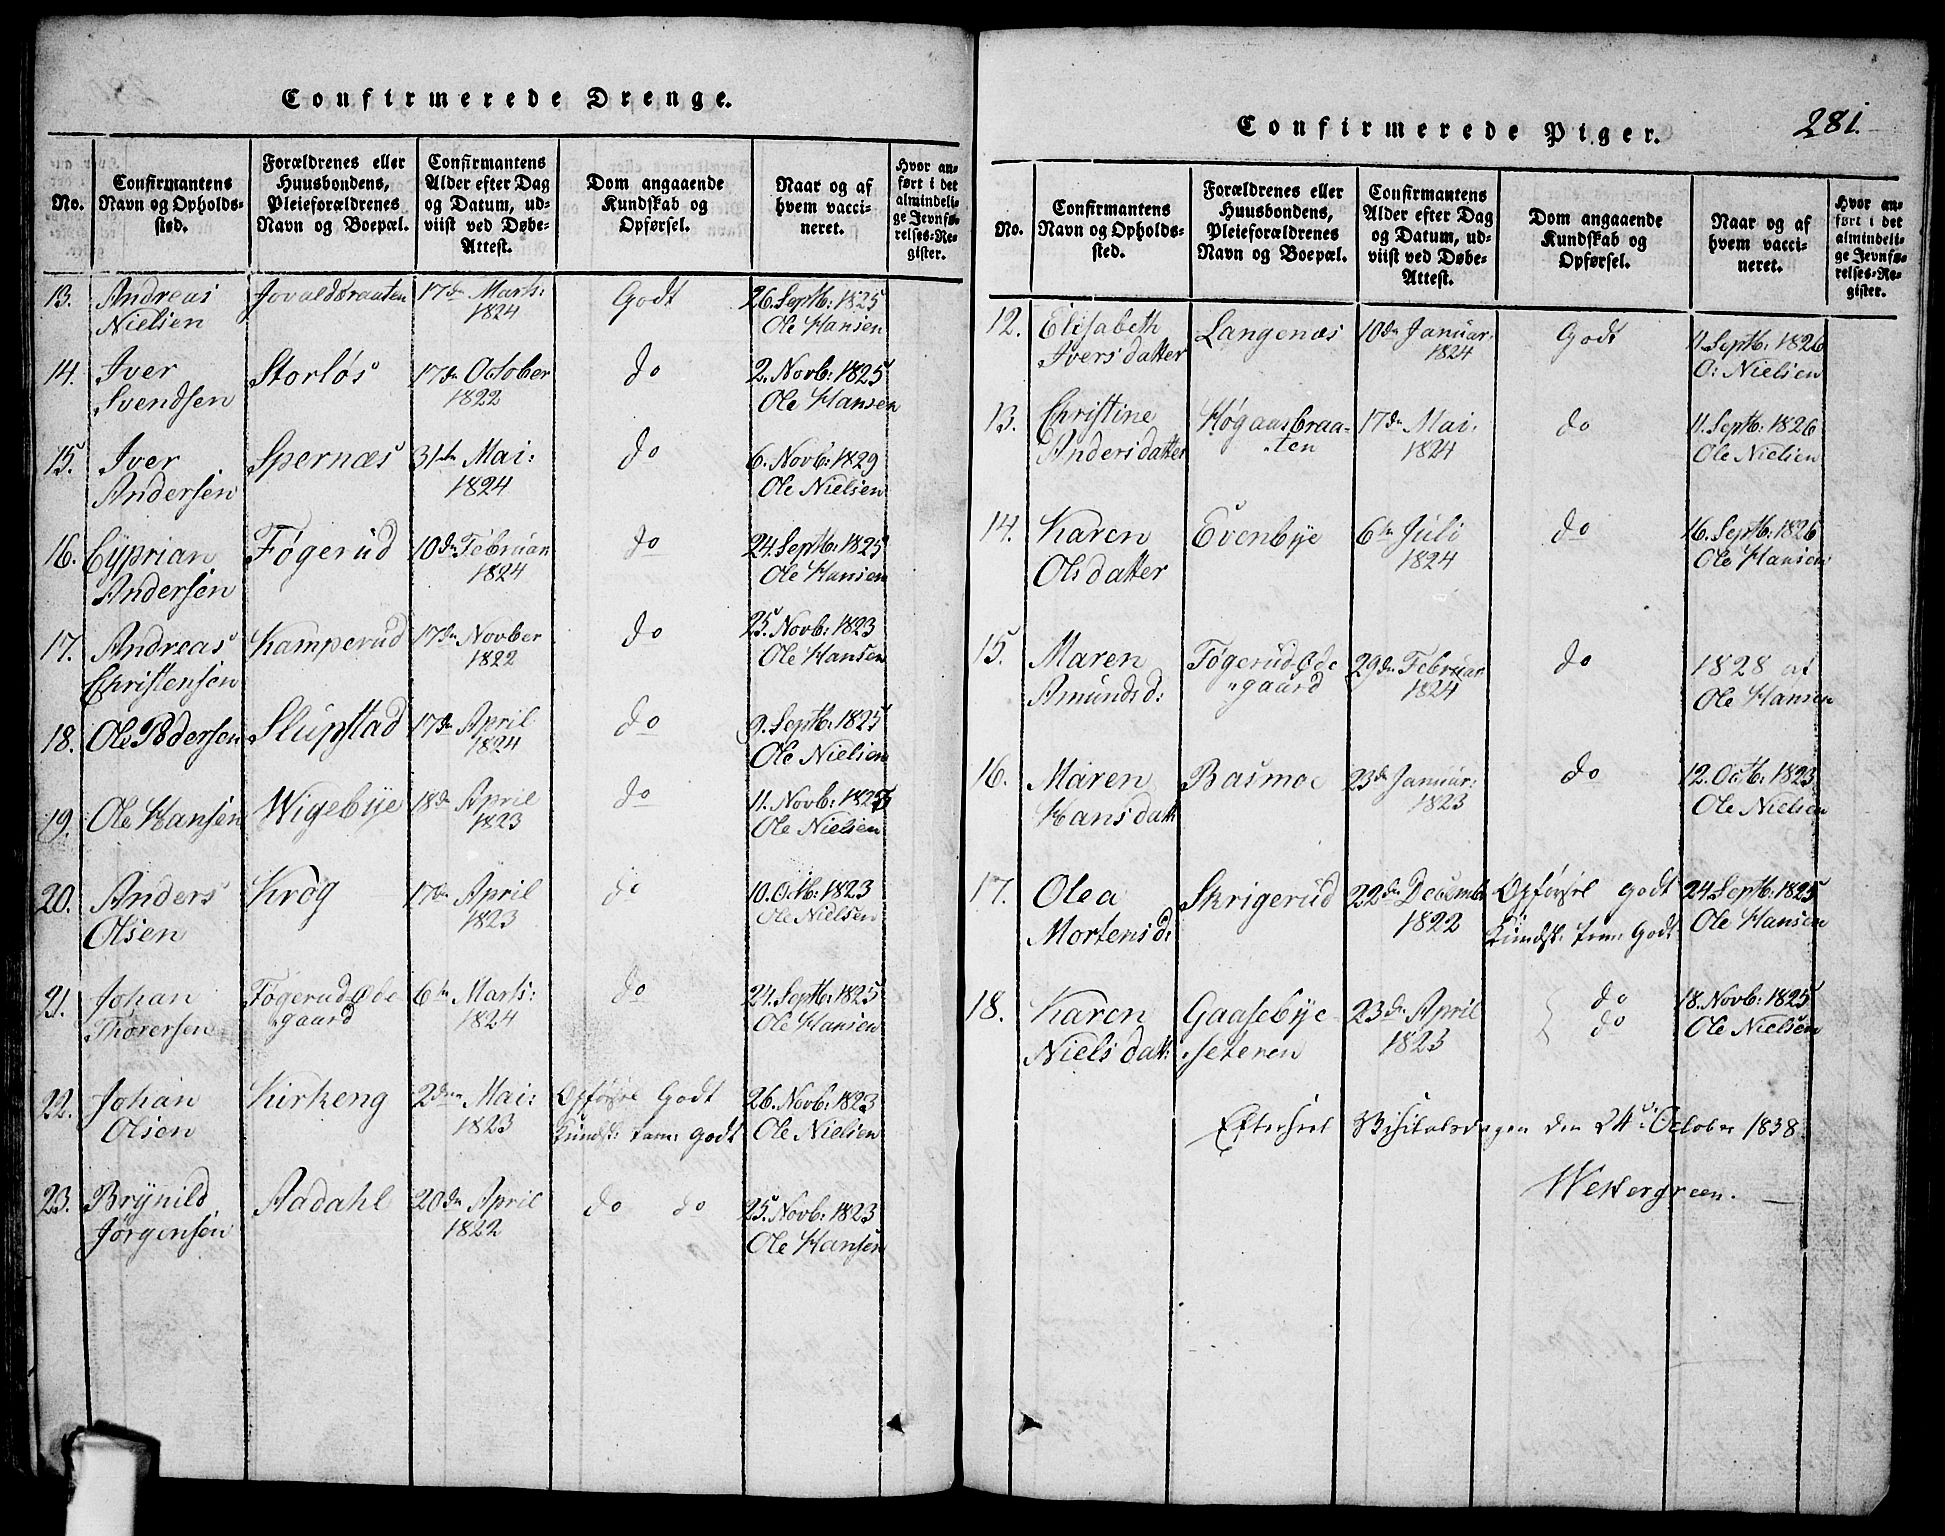 Confirmerede Drenge.
No.
Confirmantens
Navn og Opholds-
sted.
Forældrenes eller
Huusbondens,
Pleieforældrenes
Navn og Boepæl.
Confirmantens
Alder efter Dag
og Datum, ud-
viist ved Døbe-
Attest.
Dom angaaende
Kundskab og
Opførsel.
Naar og af
hvem vacci-
neret.
Hvor an-
ført i det
almindeli-
ge Jevnfø-
relses-Re-
gister.
13. Andreas Jovaldsraaten 17de Marts: Godt 26. Septb: 1825
Nielsen 1824 Ole Hansen
14. Iver Storløs 17de October do 2. Novb: 1825
Svendsen 1822 Ole Hansen
15. Iver Spernæs 31te Mai: do 6. Novb: 1829
Andersen 1824 Ole Nielsen
16. Cyprian Føgerud 10de Februar do 24. Septb: 1825
Andersen 1824 Ole Hansen
17. Andreas Kamperud 17de Novber do 25. Novb: 1823
Christensen 1822 Ole Hansen
18. Ole Pedersen Slupstad 17de April do 9. Septb: 1825
1824 Ole Nielsen
19. Ole Hansen Wigebye 18de April do 11. Novb: 1825
1823 Ole Nielsen
20. Anders Krog 17de April do 10. Octb: 1823
Olsen 1823 Ole Nielsen
21. Johan Føgerud-Øde 6te Marts: do 24. Septb: 1825
Thorersen "gaard 1824 Ole Hansen
22. Johan Kirkeng 2den Mai: Opførsel Godt 26. Novb: 1823
Olsen 1823 Kundsk: tem: godt Ole Nielsen
23. Brynild Aadahl 20de April do do 25. Novb: 1823
Jørgensen 1822 Ole Hansen
Confirmerede Piger.
281.
No.
Confirmantens
Navn og Opholds-
sted.
Forældrenes eller
Huusbondens,
Pleieforældrenes
Navn og Boepæl.
Confirmantens
Alder efter Dag
og Datum, ud-
viist ved Døbe-
Attest.
Dom angaaende
Kundskab og
Opførsel.
Naar og af
hvem vacci-
neret.
Hvor an-
ført i det
almindeli-
ge Jevnfø-
relses-Re-
gister.
12. Elisabeth Langenæs 10de Januar: Godt 11. Septb: 1826
Iversdatter 1824 O: Nielsen
13. Christine Høgaasbraa- 17de Mai: do 11. Septb: 1826
Andersdatter "ten 1824 Ole Nielsen
14. Karen Evenbye 6te Juli do 16. Septb: 1826
Olsdatter 1824 Ole Hansen
15. Maren Føgerud-Øde 29de Februar do 1828 af
Amundsd: "gaard 1824 Ole Hansen
16. Maren Basmoe 23de Januar: do 12. Octb: 1823
Hansdatt: 1823 Ole Nielsen
17. Olea Skrigerud 22de Decemb: Opførsel godt 24. Septb: 1825
Mortensd: 1822 Kundsk: tem: Godt Ole Hansen
18. Karen Gaasebye- 23de April do 18. Novb: 1825
Nielsdatt: seteren 1823 do Ole Nielsen
Efterseet Visitatsdagen den 24de October 1838.
Wettergreen.